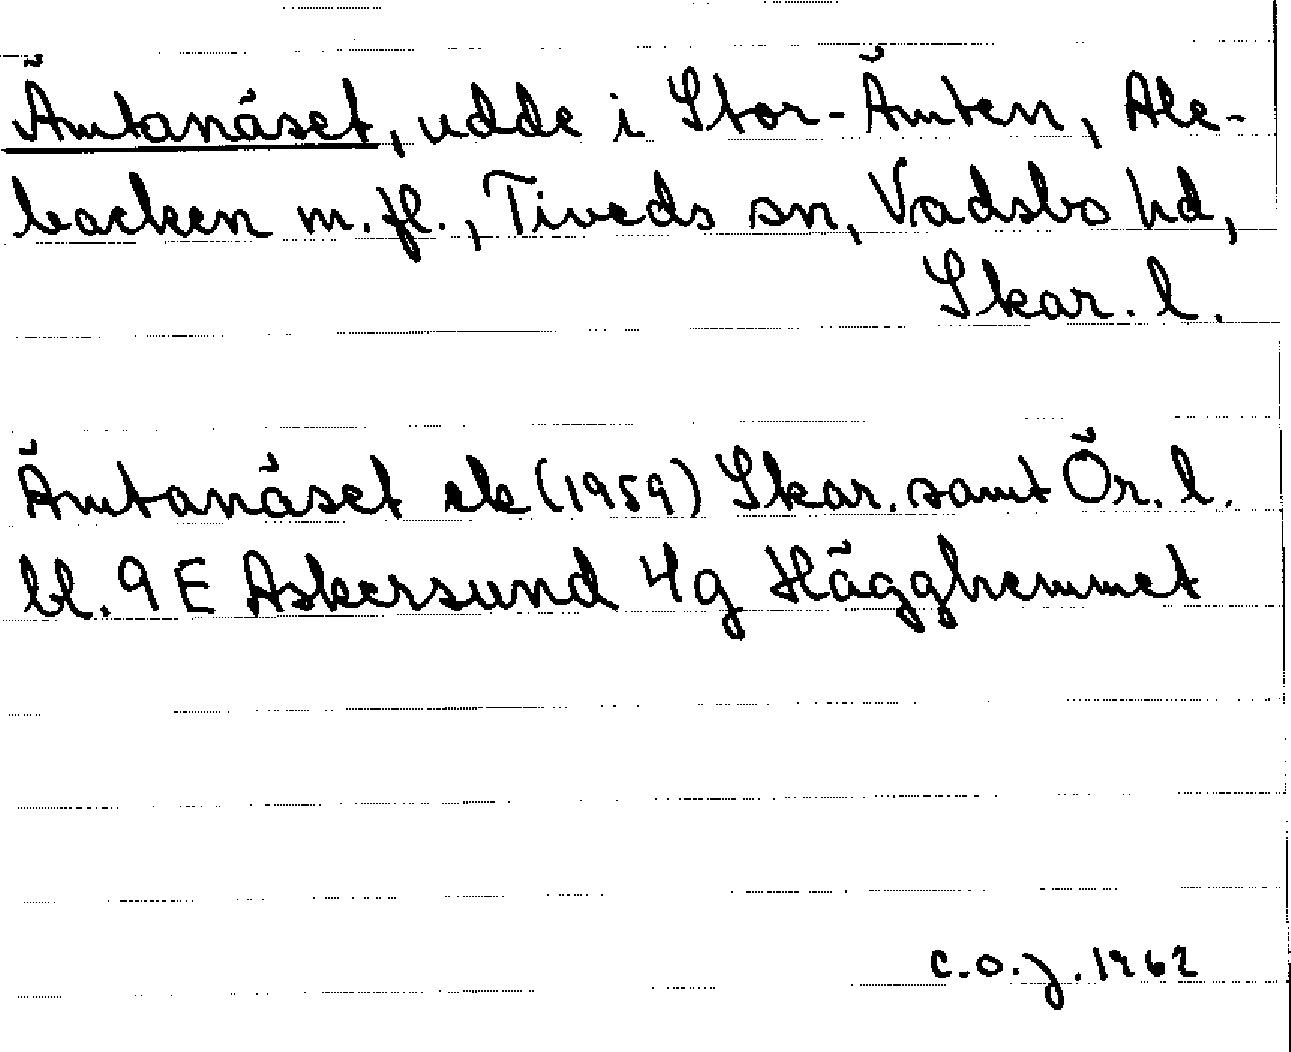 Ämtanäset, udde i Stor-Ämten, Ale-
backen m.fl., Tiveds sn, Vadsbo hd,
Skar. l.
Ämtanäset ek (1959) Skar. samt Ör. l.
bl. 9E Askersund 4g Hägghemmet
C.O.J. 1962